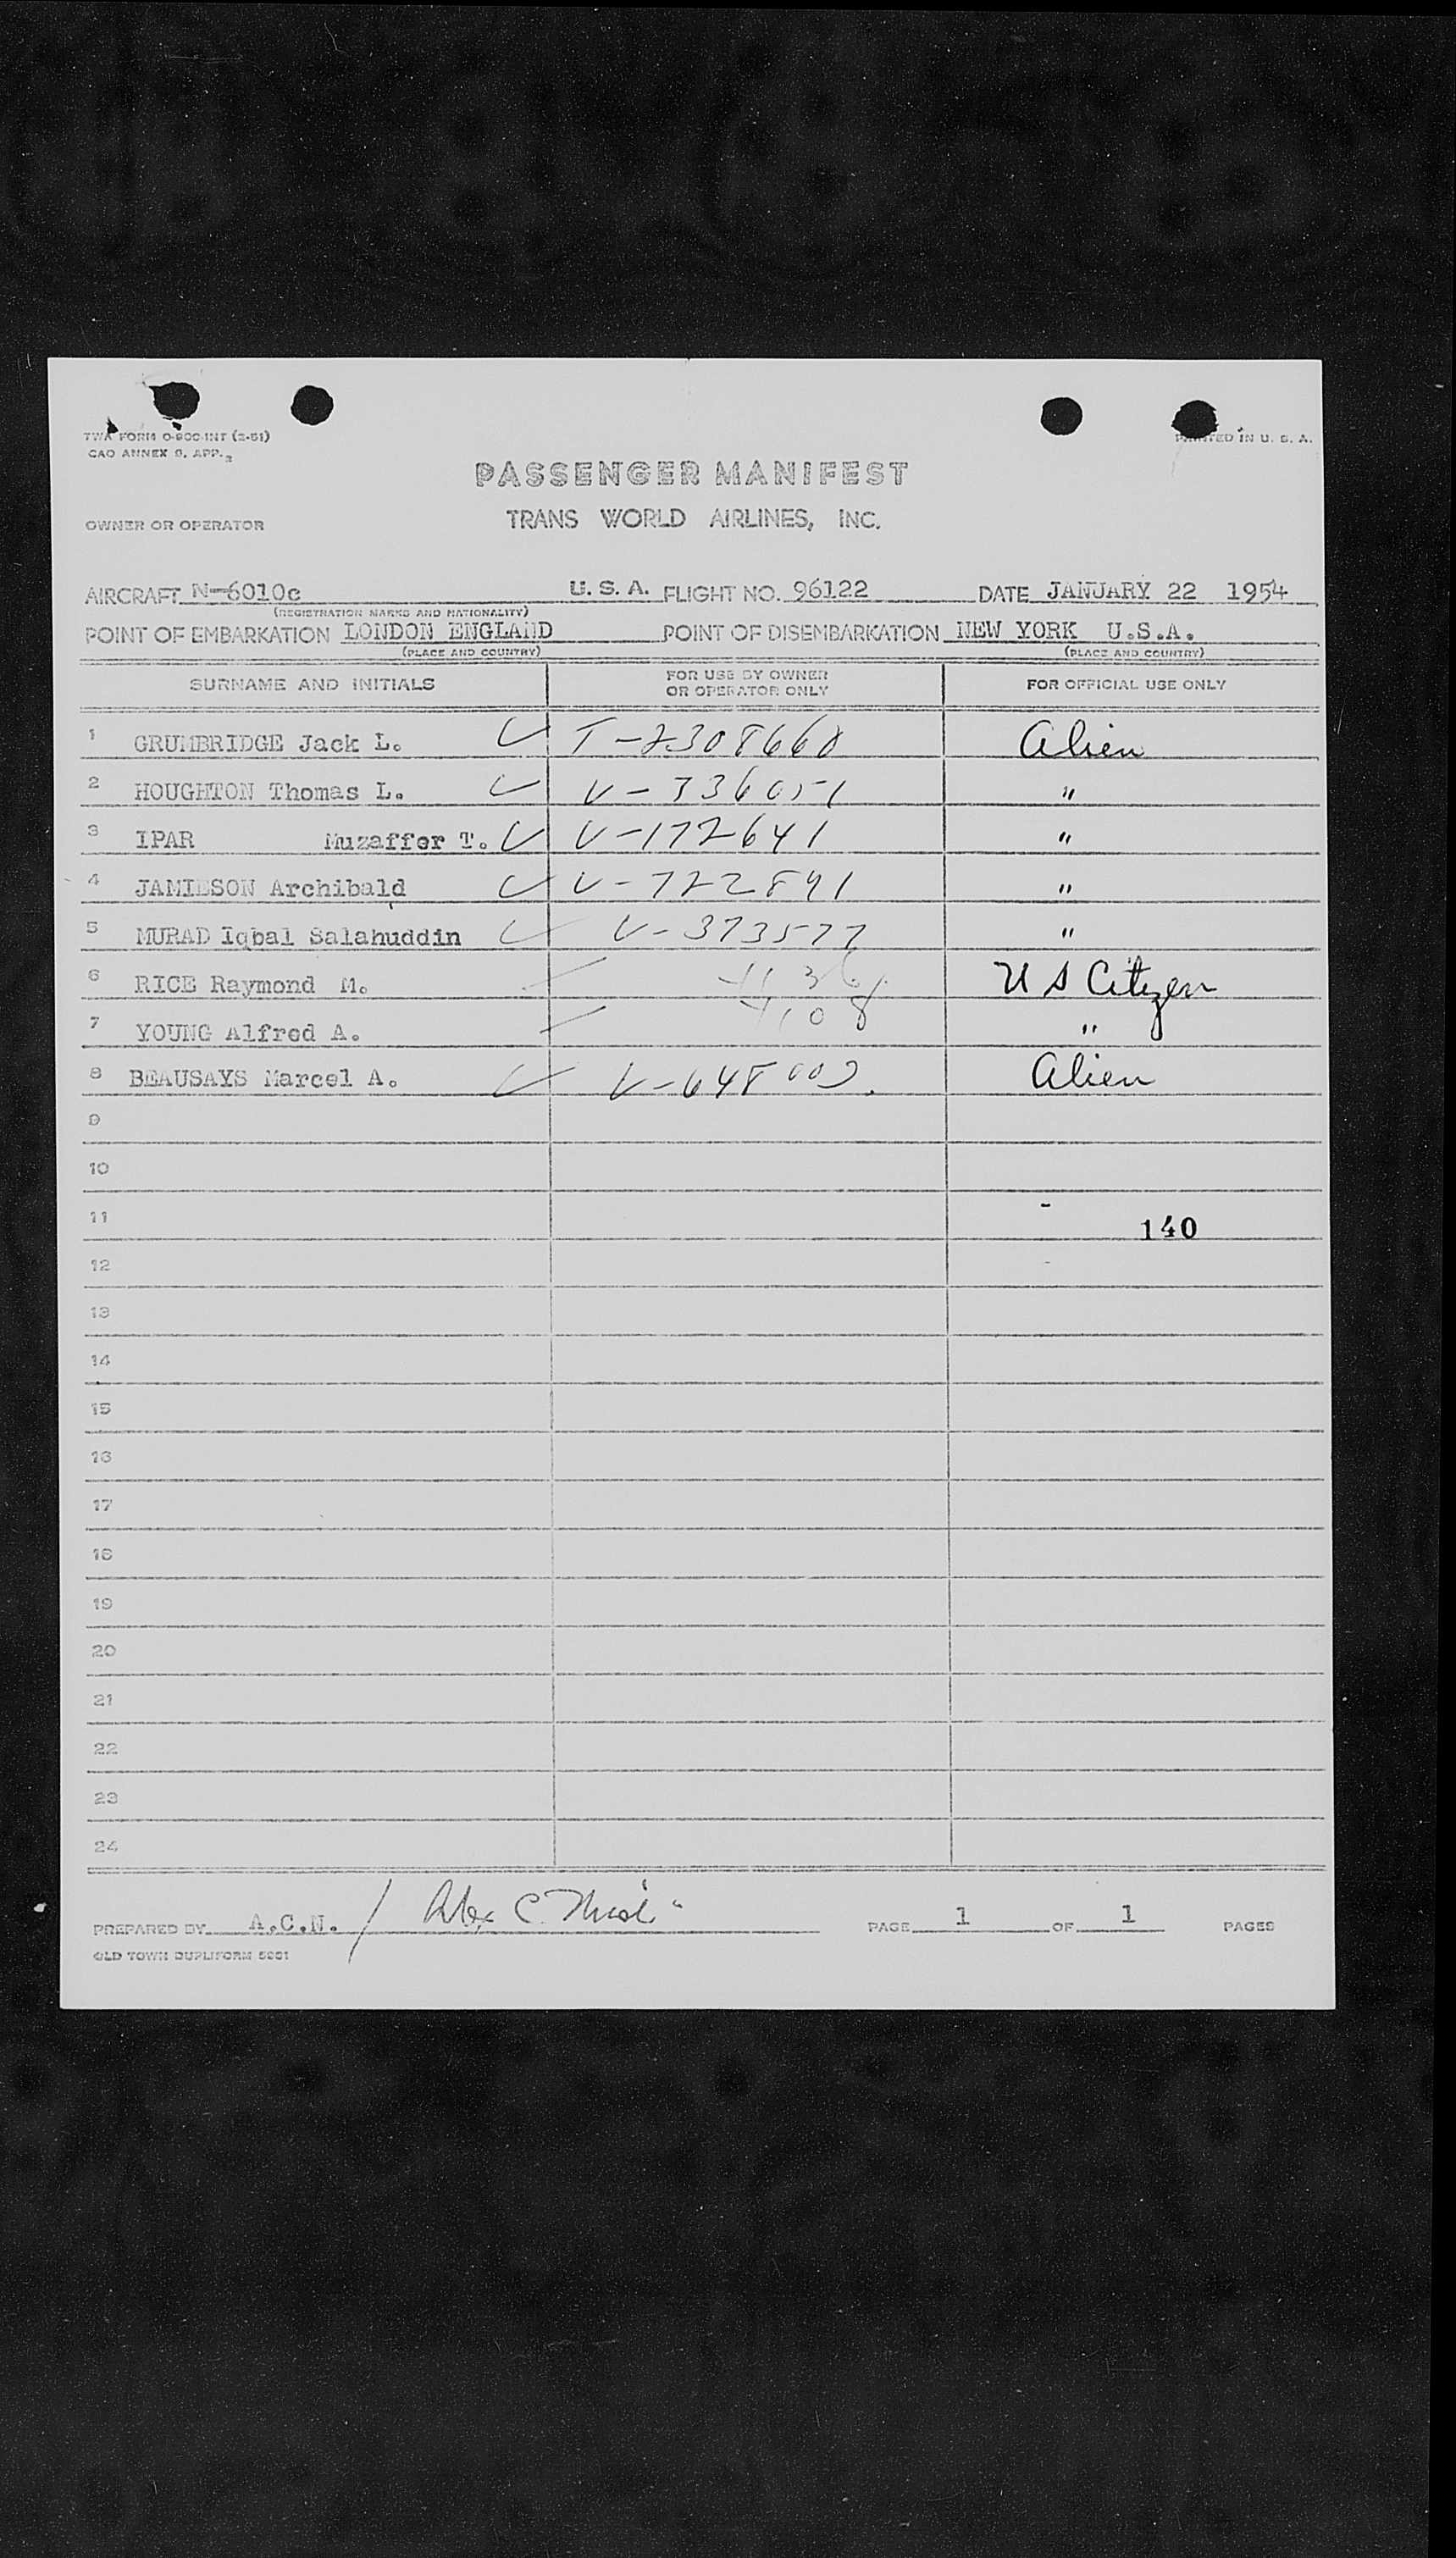 TWA FORM O-900-INT (2-51)
CAO ANNEX 9, APP. 2
PRINTED IN U. S. A.
PASSENGER MANIFEST
OWNER OR OPERATOR TRANS WORLD AIRLINES, INC.
AIRCRAFT N-6010c U. S. A. FLIGHT NO. 96122 DATE JANUARY 22 1954
(REGISTRATION MARKS AND NATIONALITY)
POINT OF EMBARKATION LONDON ENGLAND POINT OF DISEMBARKATION NEW YORK U.S.A.
(PLACE AND COUNTRY) (PLACE AND COUNTRY)
SURNAME AND INITIALS FOR USE BY OWNER OR OPERATOR ONLY FOR OFFICIAL USE ONLY
1 GRUMBRIDGE Jack L. T-2308660 Alien
2 HOUGHTON Thomas L. V-336051 "
3 IPAR Muzaffer T. V-172641 "
4 JAMIESON Archibald V-722891 "
5 MURAD Iqbal Salahuddin V-373577 "
6 RICE Raymond M. U S Citizen
7 YOUNG Alfred A. "
8 BEAUSAYS Marcel A. Alien
9
10
11 140
12
13
14
15
16
17
18
19
20
21
22
23
24
PREPARED BY A.C.N. / Alex C. PAGE 1 OF 1 PAGES
OLD TOWN DUPLIFORM 5081